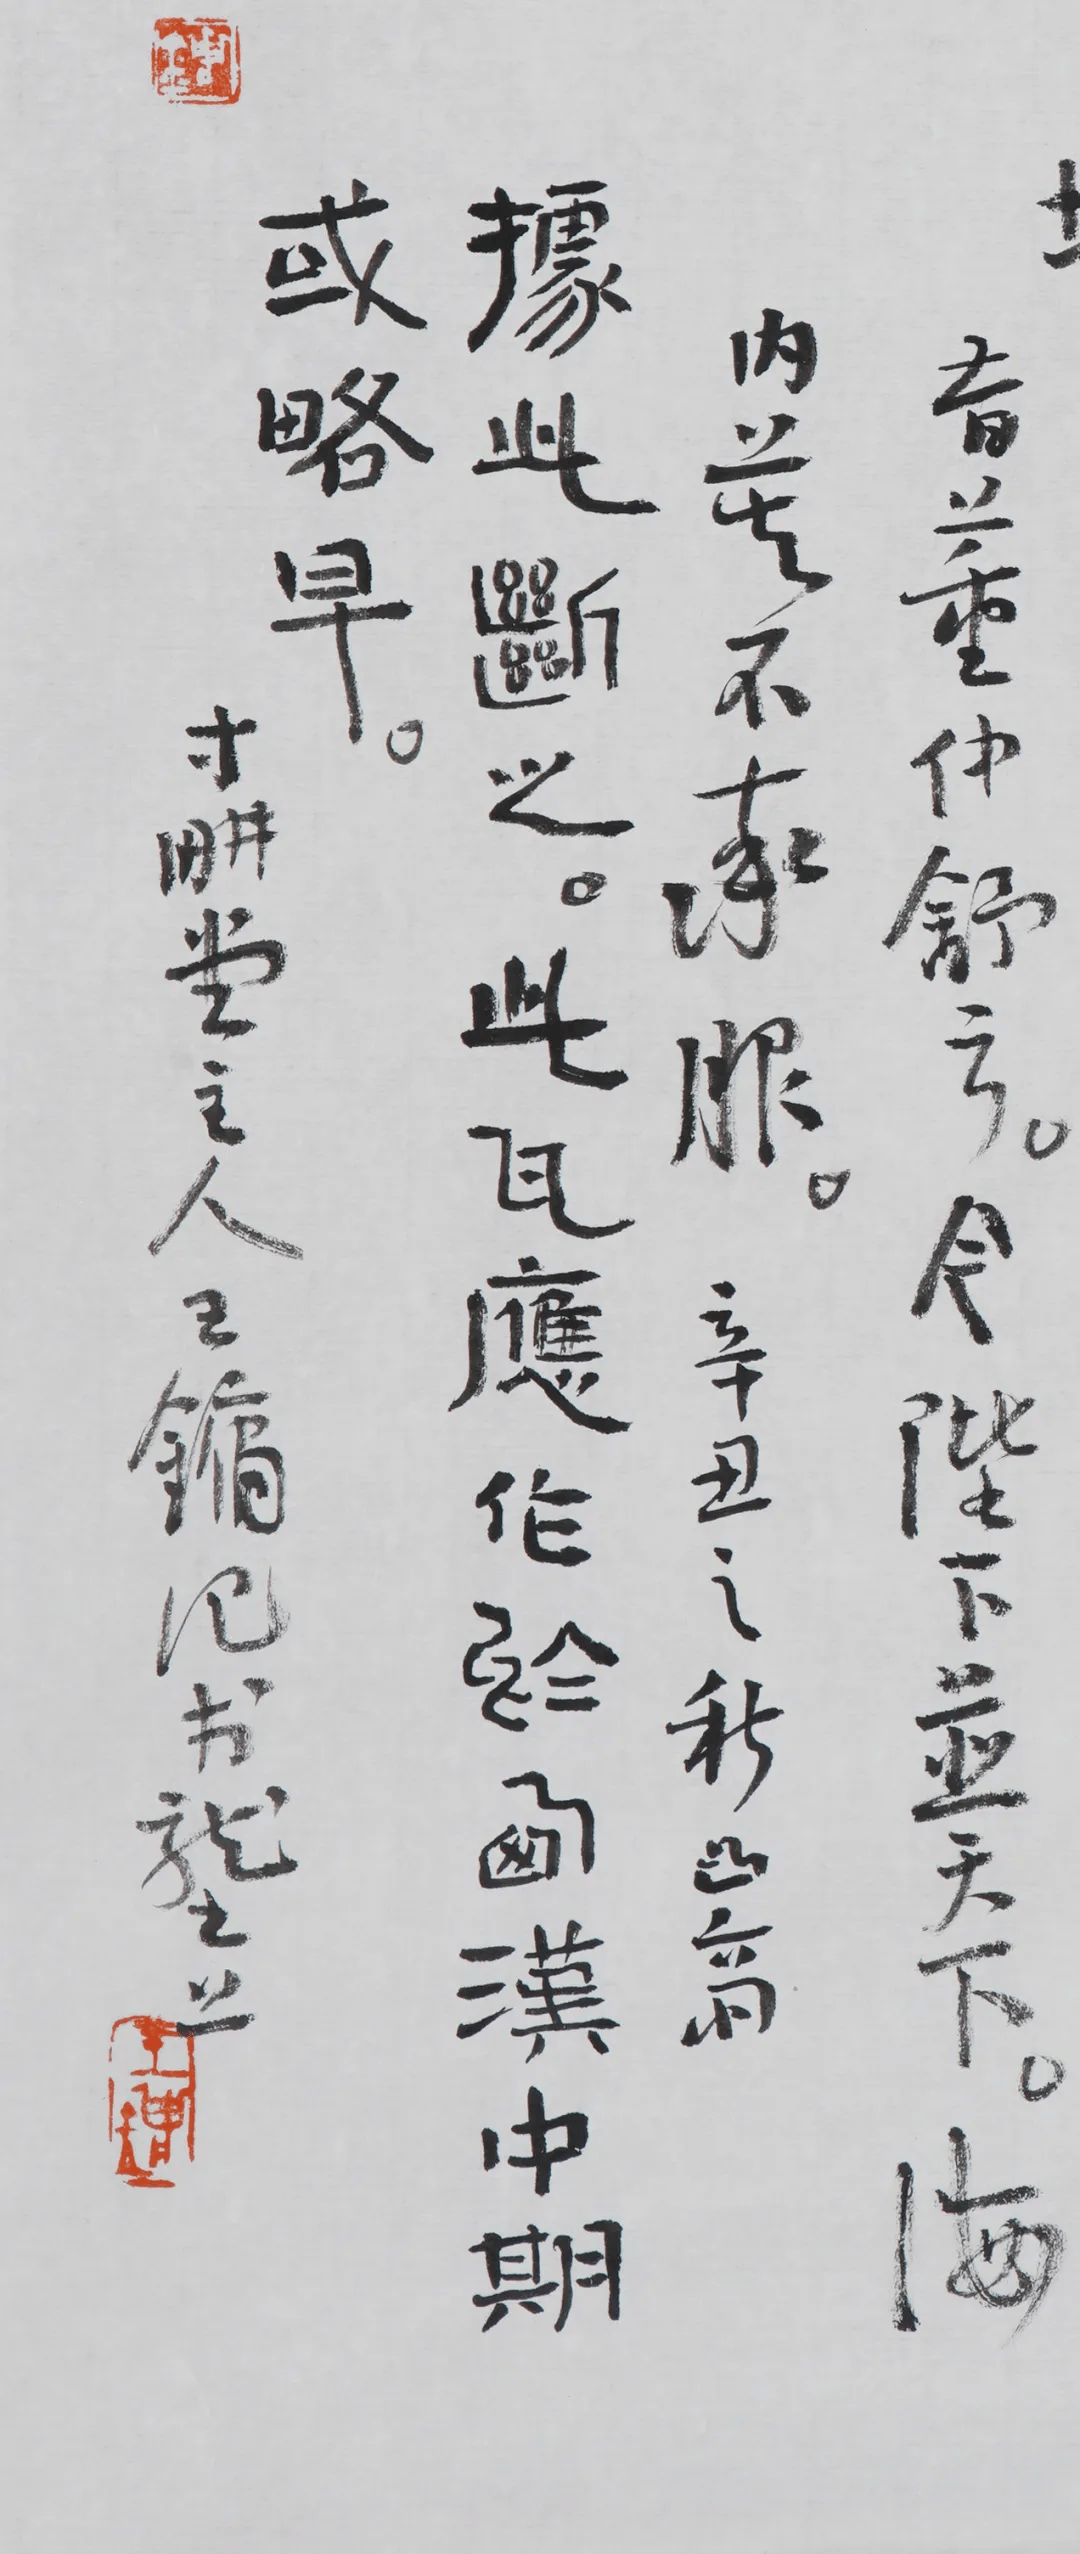 昔董仲舒言。今陛下並天下。海
内莫不率服。辛丑之秋
據此斷之。此瓦應作於西漢中期
或略早。
寸耕堂主人王鏞記书